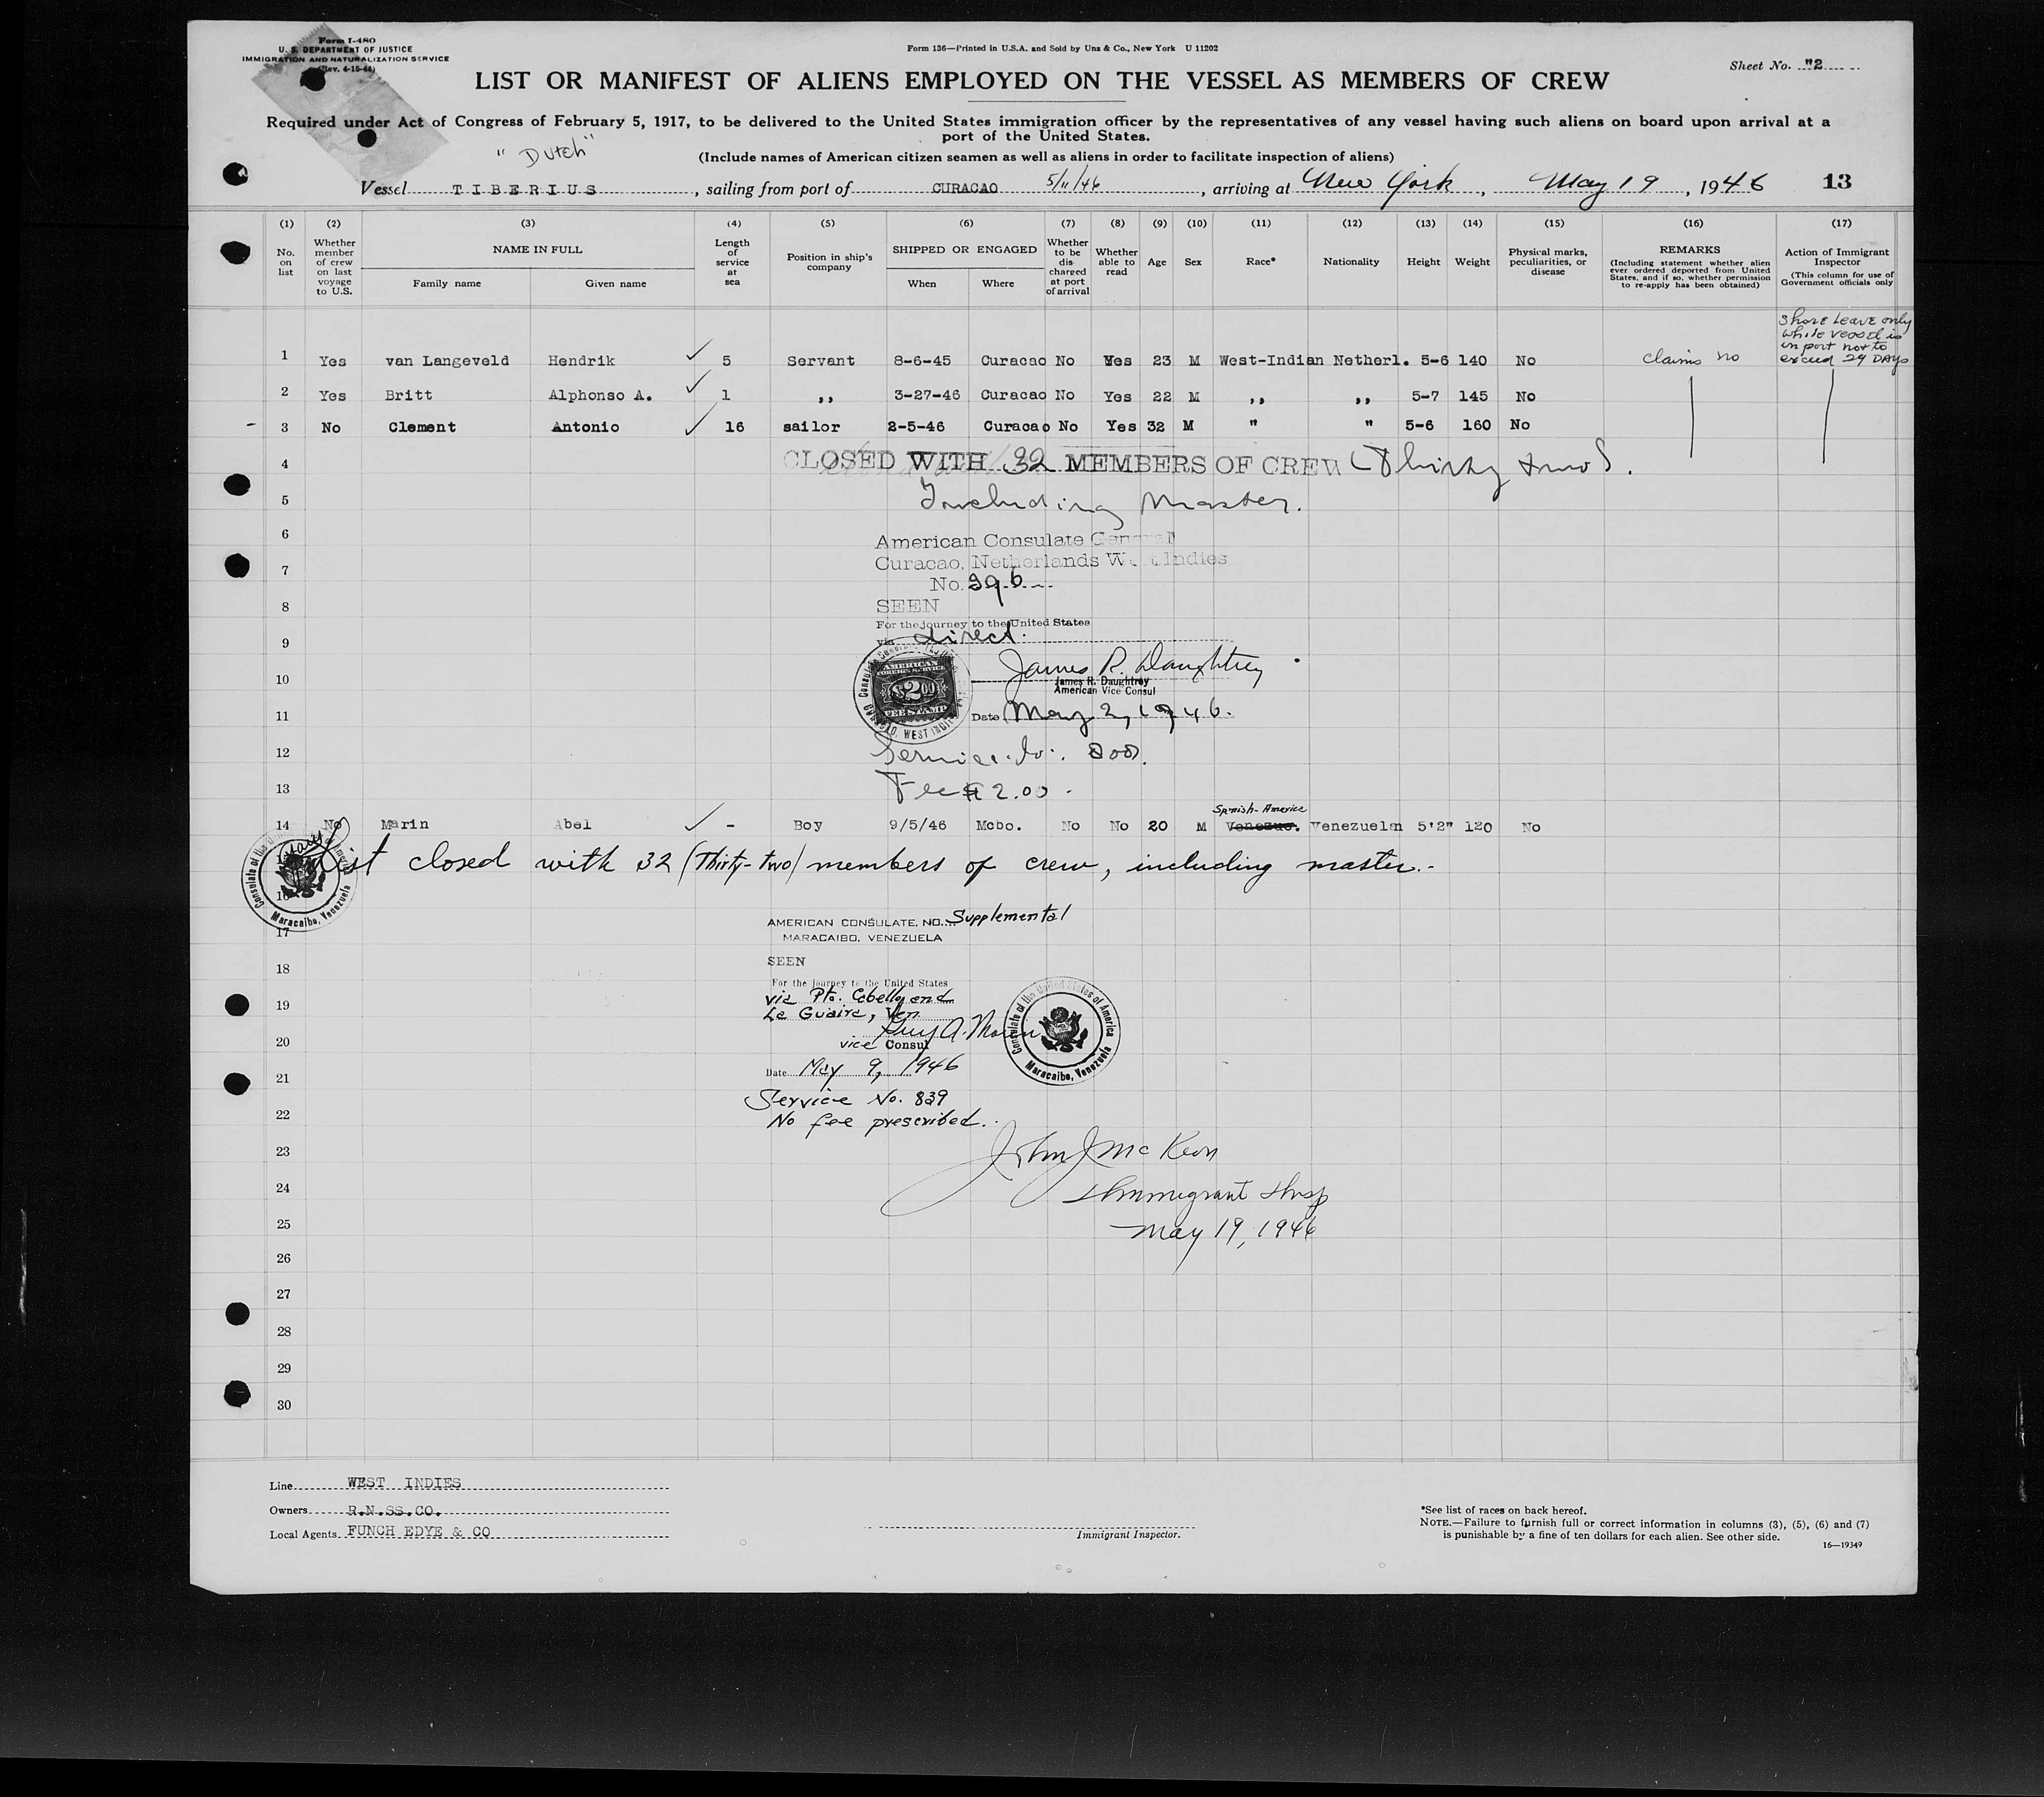 Form I-480
U. S. DEPARTMENT OF JUSTICE
IMMIGRATION AND NATURALIZATION SERVICE
(Rev. 4-15-44)
Form 136—Printed in U.S.A. and Sold by Unz & Co., New York U 11202
Sheet No. "2
LIST OR MANIFEST OF ALIENS EMPLOYED ON THE VESSEL AS MEMBERS OF CREW
Required under Act of Congress of February 5, 1917, to be delivered to the United States immigration officer by the representatives of any vessel having such aliens on board upon arrival at a
port of the United States.
"Dutch"
(Include names of American citizen seamen as well as aliens in order to facilitate inspection of aliens)
Vessel TIBERIUS, sailing from port of CURACAO 5/11/46, arriving at New York, May 19, 1946 13
(1) (2) (3) (4) (5) (6) (7) (8) (9) (10) (11) (12) (13) (14) (15) (16) (17)
No. on list
Whether member of crew on last voyage to U.S.
NAME IN FULL
Family name Given name
Length of service at sea
Position in ship's company
SHIPPED OR ENGAGED
When Where
Whether to be discharged at port of arrival
Whether able to read
Age
Sex
Race*
Nationality
Height
Weight
Physical marks, peculiarities, or disease
REMARKS
(Including statement whether alien ever ordered deported from United States, and if so, whether permission to re-apply has been obtained)
Action of Immigrant Inspector
(This column for use of Government officials only
Shore Leave only
while vessel is
in port not to
exceed 29 DAYS
1 Yes van Langeveld Hendrik ✓ 5 Servant 8-6-45 Curacao No Yes 23 M West-Indian Netherl. 5-6 140 No claims no
2 Yes Britt Alphonso A. ✓ 1 ,, 3-27-46 Curacao No Yes 22 M ,, ,, 5-7 145 No
3 No Clement Antonio ✓ 16 sailor 2-5-46 Curacao No Yes 32 M " " 5-6 160 No
4 CLOSED WITH 32 MEMBERS OF CREW (Thirty two).
5 Including Master.
6 American Consulate General
7 Curacao, Netherlands West Indies
No. 296
8 SEEN
For the journey to the United States
9 via direct.
James R. Daughtrey
10 James R. Daughtrey
American Vice Consul
AMERICAN
FOREIGN SERVICE
$2.00
FEE STAMP
11 Date May 2, 1946.
12 Service No: 800.
13 Fee $2.00.
Spanish-America
14 No Marin Abel ✓ - Boy 9/5/46 Mcbo. No No 20 M Venezue. Venezuelan 5'2" 120 No
List closed with 32 (Thirty-two) members of crew, including master.-
16
Consulate of the United States of America
Maracaibo, Venezuela
17
AMERICAN CONSULATE, NO. Supplemental
MARACAIBO, VENEZUELA
18 SEEN
For the journey to the United States
19 via Pto. Cabello and
La Guaira, Ven
20 vice Consul
Consulate of the United States of America
Maracaibo, Venezuela
21 Date May 9, 1946
Service No. 839
22 No fee prescribed.
23 John J McKeon
24 Immigrant Insp
25 May 19, 1946
26
27
28
29
30
Line WEST INDIES
Owners R.N.SS.CO.
Local Agents FUNCH EDYE & CO
Immigrant Inspector.
*See list of races on back hereof.
NOTE.—Failure to furnish full or correct information in columns (3), (5), (6) and (7)
is punishable by a fine of ten dollars for each alien. See other side.
16—19349